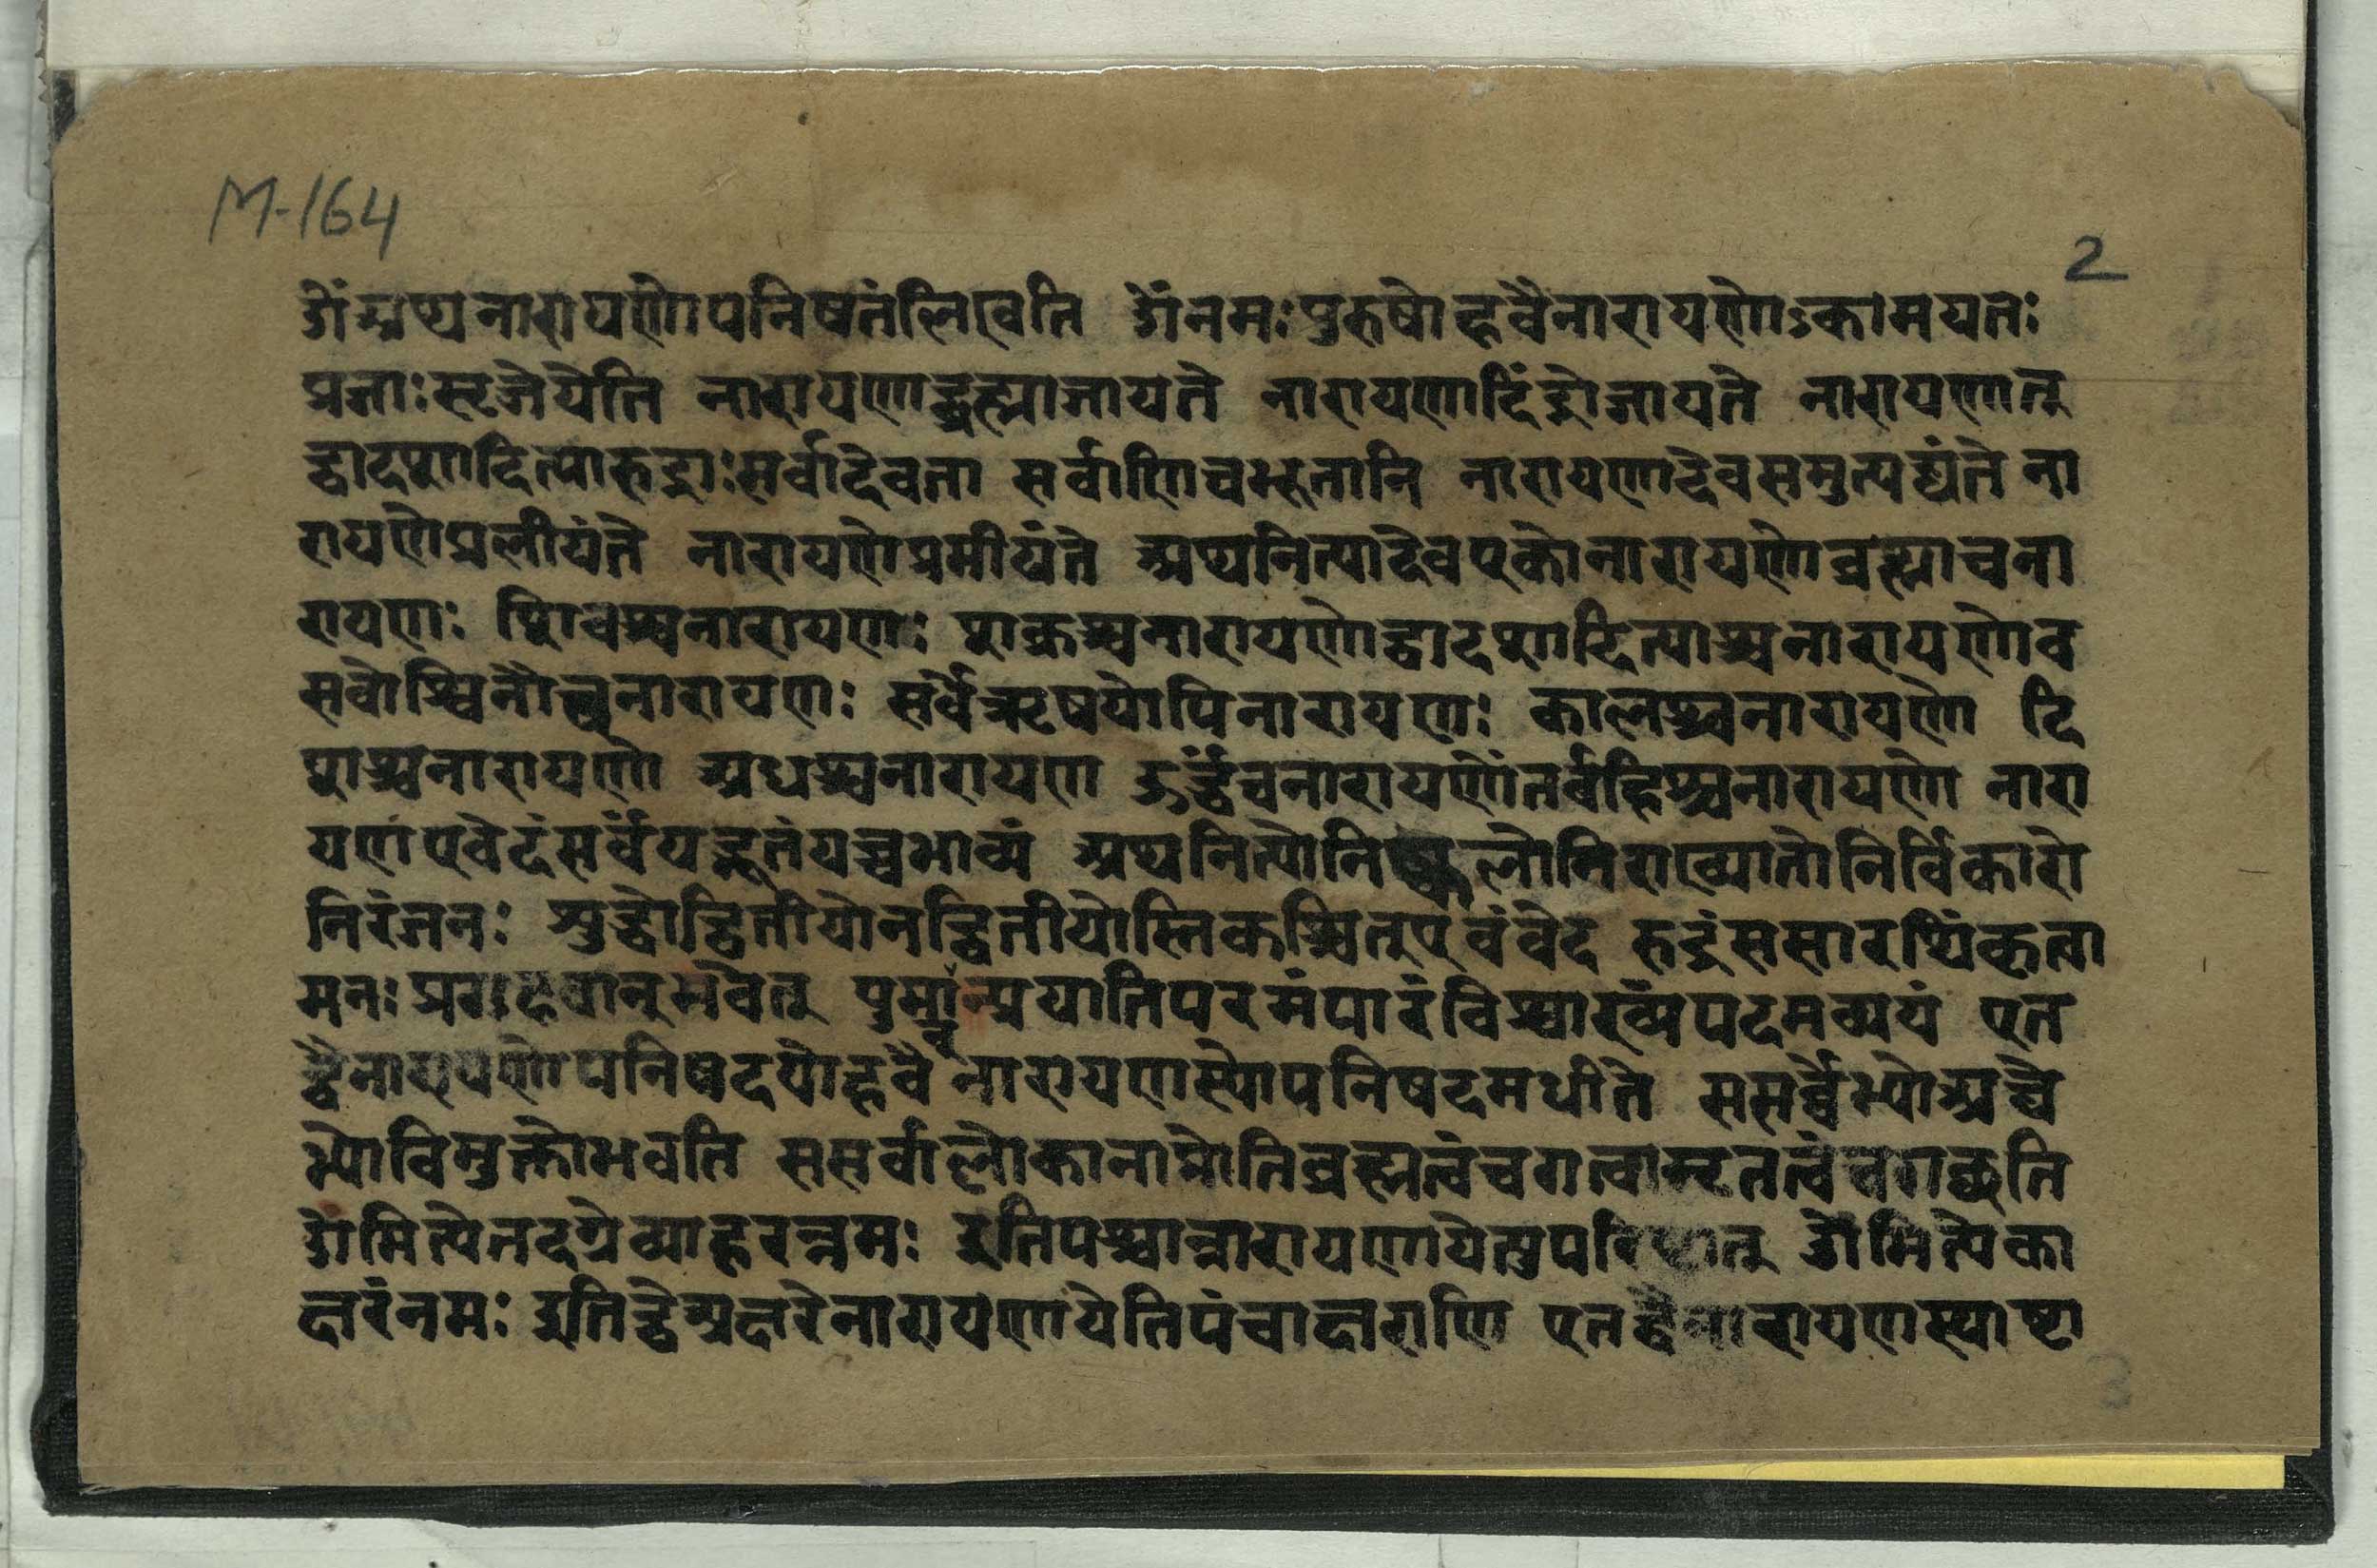 M-164
2
ॐअथनारायणोपनिषतंलिखति ॐनमः पुरुषोहवैनारायणोऽकामयतः
प्रजाःसृजेयेति नारायणाद्ब्रह्माजायते नारायणादिंद्रोजायते नारायणात्
द्वादशादित्यारुद्राःसर्वादेवता सर्वाणिचभूतानि नारायणादेवसमुत्पद्यंते ना
रायणेप्रलीयंते नारायणेप्रमीयंते अथनित्यादेवएकोनारायणोब्रह्माचना
रायणः शिवश्चनारायणः शक्रश्चनारायणोद्वादशादित्याश्चनारायणोव
सवोश्विनौचनारायणः सर्वेऋषयोपिनारायणः कालश्चनारायणो दि
शश्चनारायणो अधश्चनारायण ऊर्द्ध्वंचनारायणोंतर्वहिश्चनारायणो नारा
यणंएवेदंसर्वंयद्भूतंयच्चभाव्यं अथनित्योनिष्कलोनिराख्यातोनिर्विकारो
निरंजनः शुद्धोद्वितीयोनद्वितीयोस्तिकश्चित्एवंवेद रुद्रंससारथिंकृत्वा
मनः प्रग्रहवानुभवेत् पुमान्प्रयातिपरमंपारंविश्वाख्यंपदमव्ययं एत
द्वैनारायणोपनिषदयोहवै नारायणस्योपनिषदमधीते ससर्वेभ्योअवै
भ्योविमुक्तोभवति ससर्वालोकानाप्नोतिब्रह्मत्वंचगत्वामृतत्वंचगछति
ॐमित्येतदग्रेव्याहरन्नमः इतिपश्चान्नारायणायेत्युपरिष्टात् ॐमित्येका
क्षरंनमः इतिद्वेअक्षरेनारायणायेतिपंचाक्षराणि एतद्वैनारायणस्याष्टा